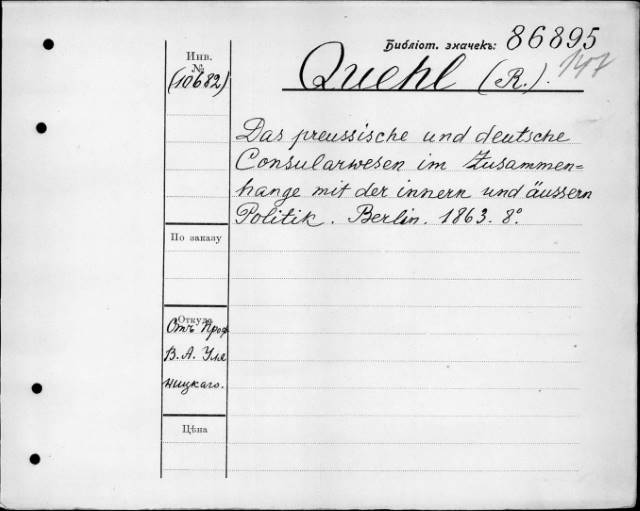 Библіот. значекъ: 86895
147
Инв.
№
(10682)
Quehl (R.).
Das preussische und deutsche
Consularwesen im Zusammen=
hange mit der innern und äussern
Politik. Berlin. 1863. 8º.
По заказу
Откуда
Отъ Проф
В. А. Уля
ницкаго.
Цѣна